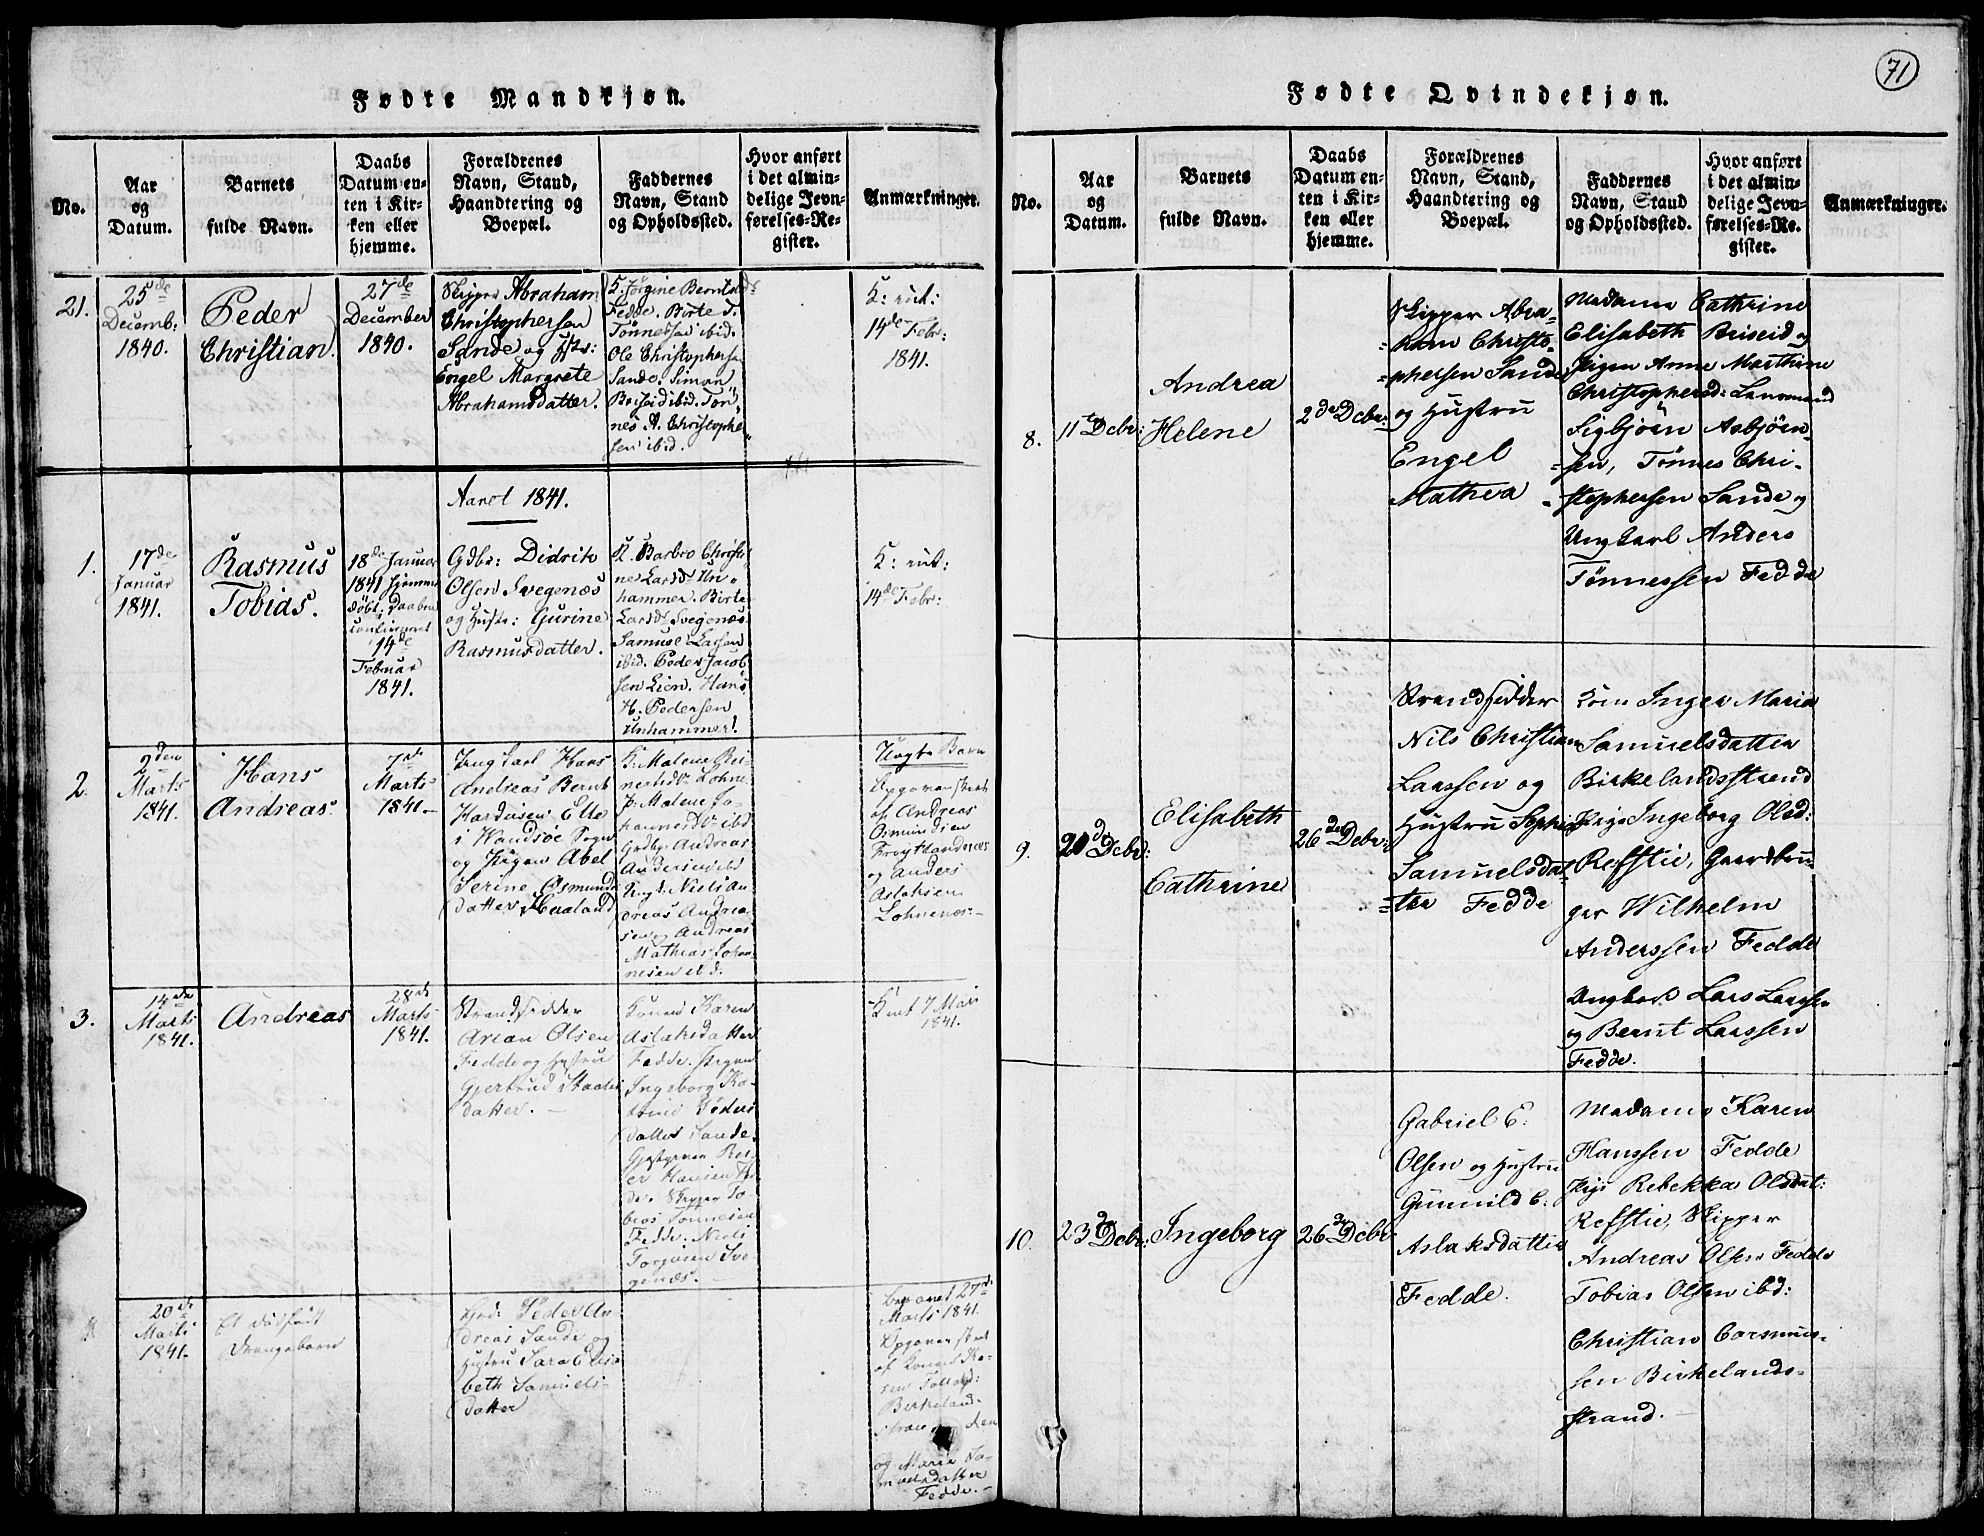 71
Fødte Mandkjøn.
No.
Aar
og
Datum.
Barnets
fulde Navn.
Daabs
Datum en-
ten i Kir-
ken eller
hjemme.
Forældrenes
Navn, Stand,
Haandtering og
Boepæl.
Faddernes
Navn, Stand
og Opholdssted.
Hvor anført
i det almin-
delige Jevn-
førelses-Re-
gister.
Anmærkninger.
21.
25de
Decemb:
1840.
Peder
Christian.
27de
December
1840.
Skipper Abraham
Christophersen
Sande og
Engel Margrete
Abrahamsdatter.
K. Jørgine Berntsd:
Fedde. Birte J.
Tønnessen ibid.
Ole Christophersen
Sande. Simon
Briseid ibid. Tøn
nes A. Christophe
sen ibid.
14de Febr:
1841.
Aaret 1841.
1.
17de
Januar
1841.
Rasmus
Tobias.
18de Januar
1841 hjemme
døbt; Daaben
14de
Februar
1841.
Gdbr: Didrik
Olsen Svegenæs
og Hustr: Gurine
Rasmusdatter.
K. Barbro Christi
ne Larsd: Un-
hammer. Birte
Larsd: Svegenæs.
Samuel Larsen
ibid. Peder Jacob
sen Lien. Hans
H. Pedersen
Unhammer.
14de Febr:
2.
2den
Marts
1841.
Hans
Andreas.
7de
Marts
1841.-
Ungkarl Hans
Andreas Bernt
og Pigen Abel
Serine Osmunds
datter Haaland
K: Malene Rei
nertsdr Lohne
P: Malene Jo
hannesdr ibd
Gdbr Andreas
Andersen
Ungk: Niels An
dreas Andrea
sen og Andreas
Mathias Johan
nesen ibd.
Uægte Barn
Opgaven skeet
af Andreas
Osmundsen
og Anders
Aslaksen
Lohnenæs.-
3.
14de
Marts
1841.
Andreas
28de
Marts
1841.
Strandsidder
Arian Olsen
Fedde og Hustru
Gjertrud
datter. -
Konen Karen
Aslaksdatter
Fedde. Pigen
Ingeborg Ka-
trine Peders
datter Sande.
Gjestgiver Rei
er Hansen Fe
de. Skipper To
bias Tønnesen
Fedde. Niels
Torjusen Sve
genæs.-
7 Mai
1841.
20de
Marts
1841.
Et dødfødt
Drengebarn
Peder An
dreas Sande og
Hustru Sara Elisa
beth Samuels
datter
begravet 27de
Marts 1841.
Opgaven skeet
af
Birkeland
og Maria Sa-
muelsdatter
Fedde.-
Fødte Qvindekjøn.
No.
Aar
og
Datum.
Barnets
fulde Navn.
Daabs
Datum en-
ten i Kir-
ken eller
hjemme.
Forældrenes
Navn, Stand,
Haandtering og
Boepæl.
Faddernes
Navn, Stand
og Opholdssted.
Hvor anført
i det almin-
delige Jevn-
førelses-Re-
gister.
Anmærkninger.
8.
11te Debr:
Andrea
Helene
2de Debr:
Skipper Abra-
ham Christo-
phersen Sande
og Hustru
Engel
Mathea
Madame Cathrine
Elisabeth Briseid og
Pigen Anne Marthine
Christophersd: Lensmand
Sigbjørn Asbjørn-
sen, Tønnes Chri-
stophersen Sande og
Ungkarl Anders
Tønnessen Fedde
9.
20de Debr:
Elisabeth
Cathrine
26de Debr:
Strandsidder
Nils Christian
Larssen og
Hustru Sophie
Samuelsdat-
ter Fedde
Kone Inger Maria
Samuelsdatter
Birkelandsstrand
Pige Ingeborg Olsd:
Refstie, Gaardbru
ger Wilhelm
Anderssen Fedde
Ungkarl Lars Larssen
og Bernt Larssen
Fedde.
10.
23de Debr:
Ingeborg
26de Debr
Gabriel E:
Olsen og Hustru
Gunnild C:
Aslaksdatter
Fedde.
Madame Karen
Hanssen Fedde
Pige Rebekka Olsdat:
Refstie, Skipper
Andreas Olsen Fedde
Tobias Olsen ibd:
Christian Corsmus-
sen Birkelands-
strand.-